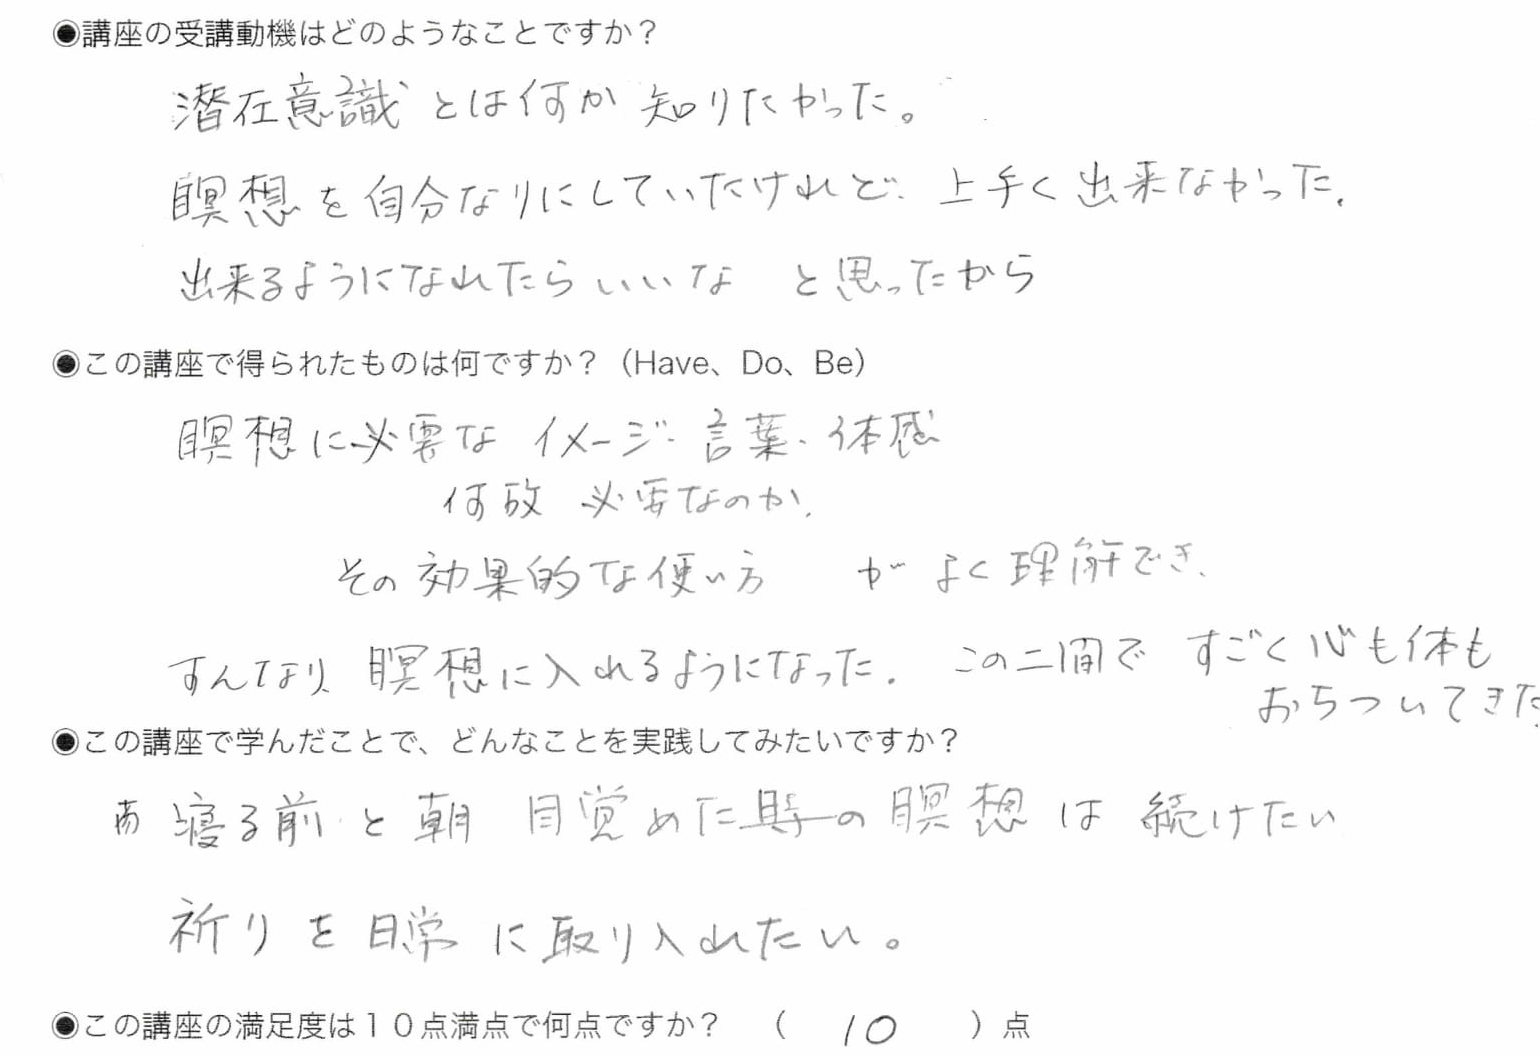 ◉講座の受講動機はどのようなことですか？
潜在意識とは何か 知りたかった。
瞑想を自分なりにしていたけれど、上手く出来なかった。
出来るようになれたらいいな と思ったから
◉この講座で得られたものは何ですか？（Have、Do、Be）
瞑想に必要な イメージ・言葉・体感
何故 必要なのか、
その効果的な使い方 が よく理解でき、
すんなり、瞑想に入れるようになった。 この二間で すごく心も体も
おちついてきた
◉この講座で学んだことで、どんなことを実践してみたいですか？
寝る前と朝 目覚めた時の瞑想は 続けたい
祈りを日常に取り入れたい。
◉この講座の満足度は１０点満点で何点ですか？ （ 10 ）点